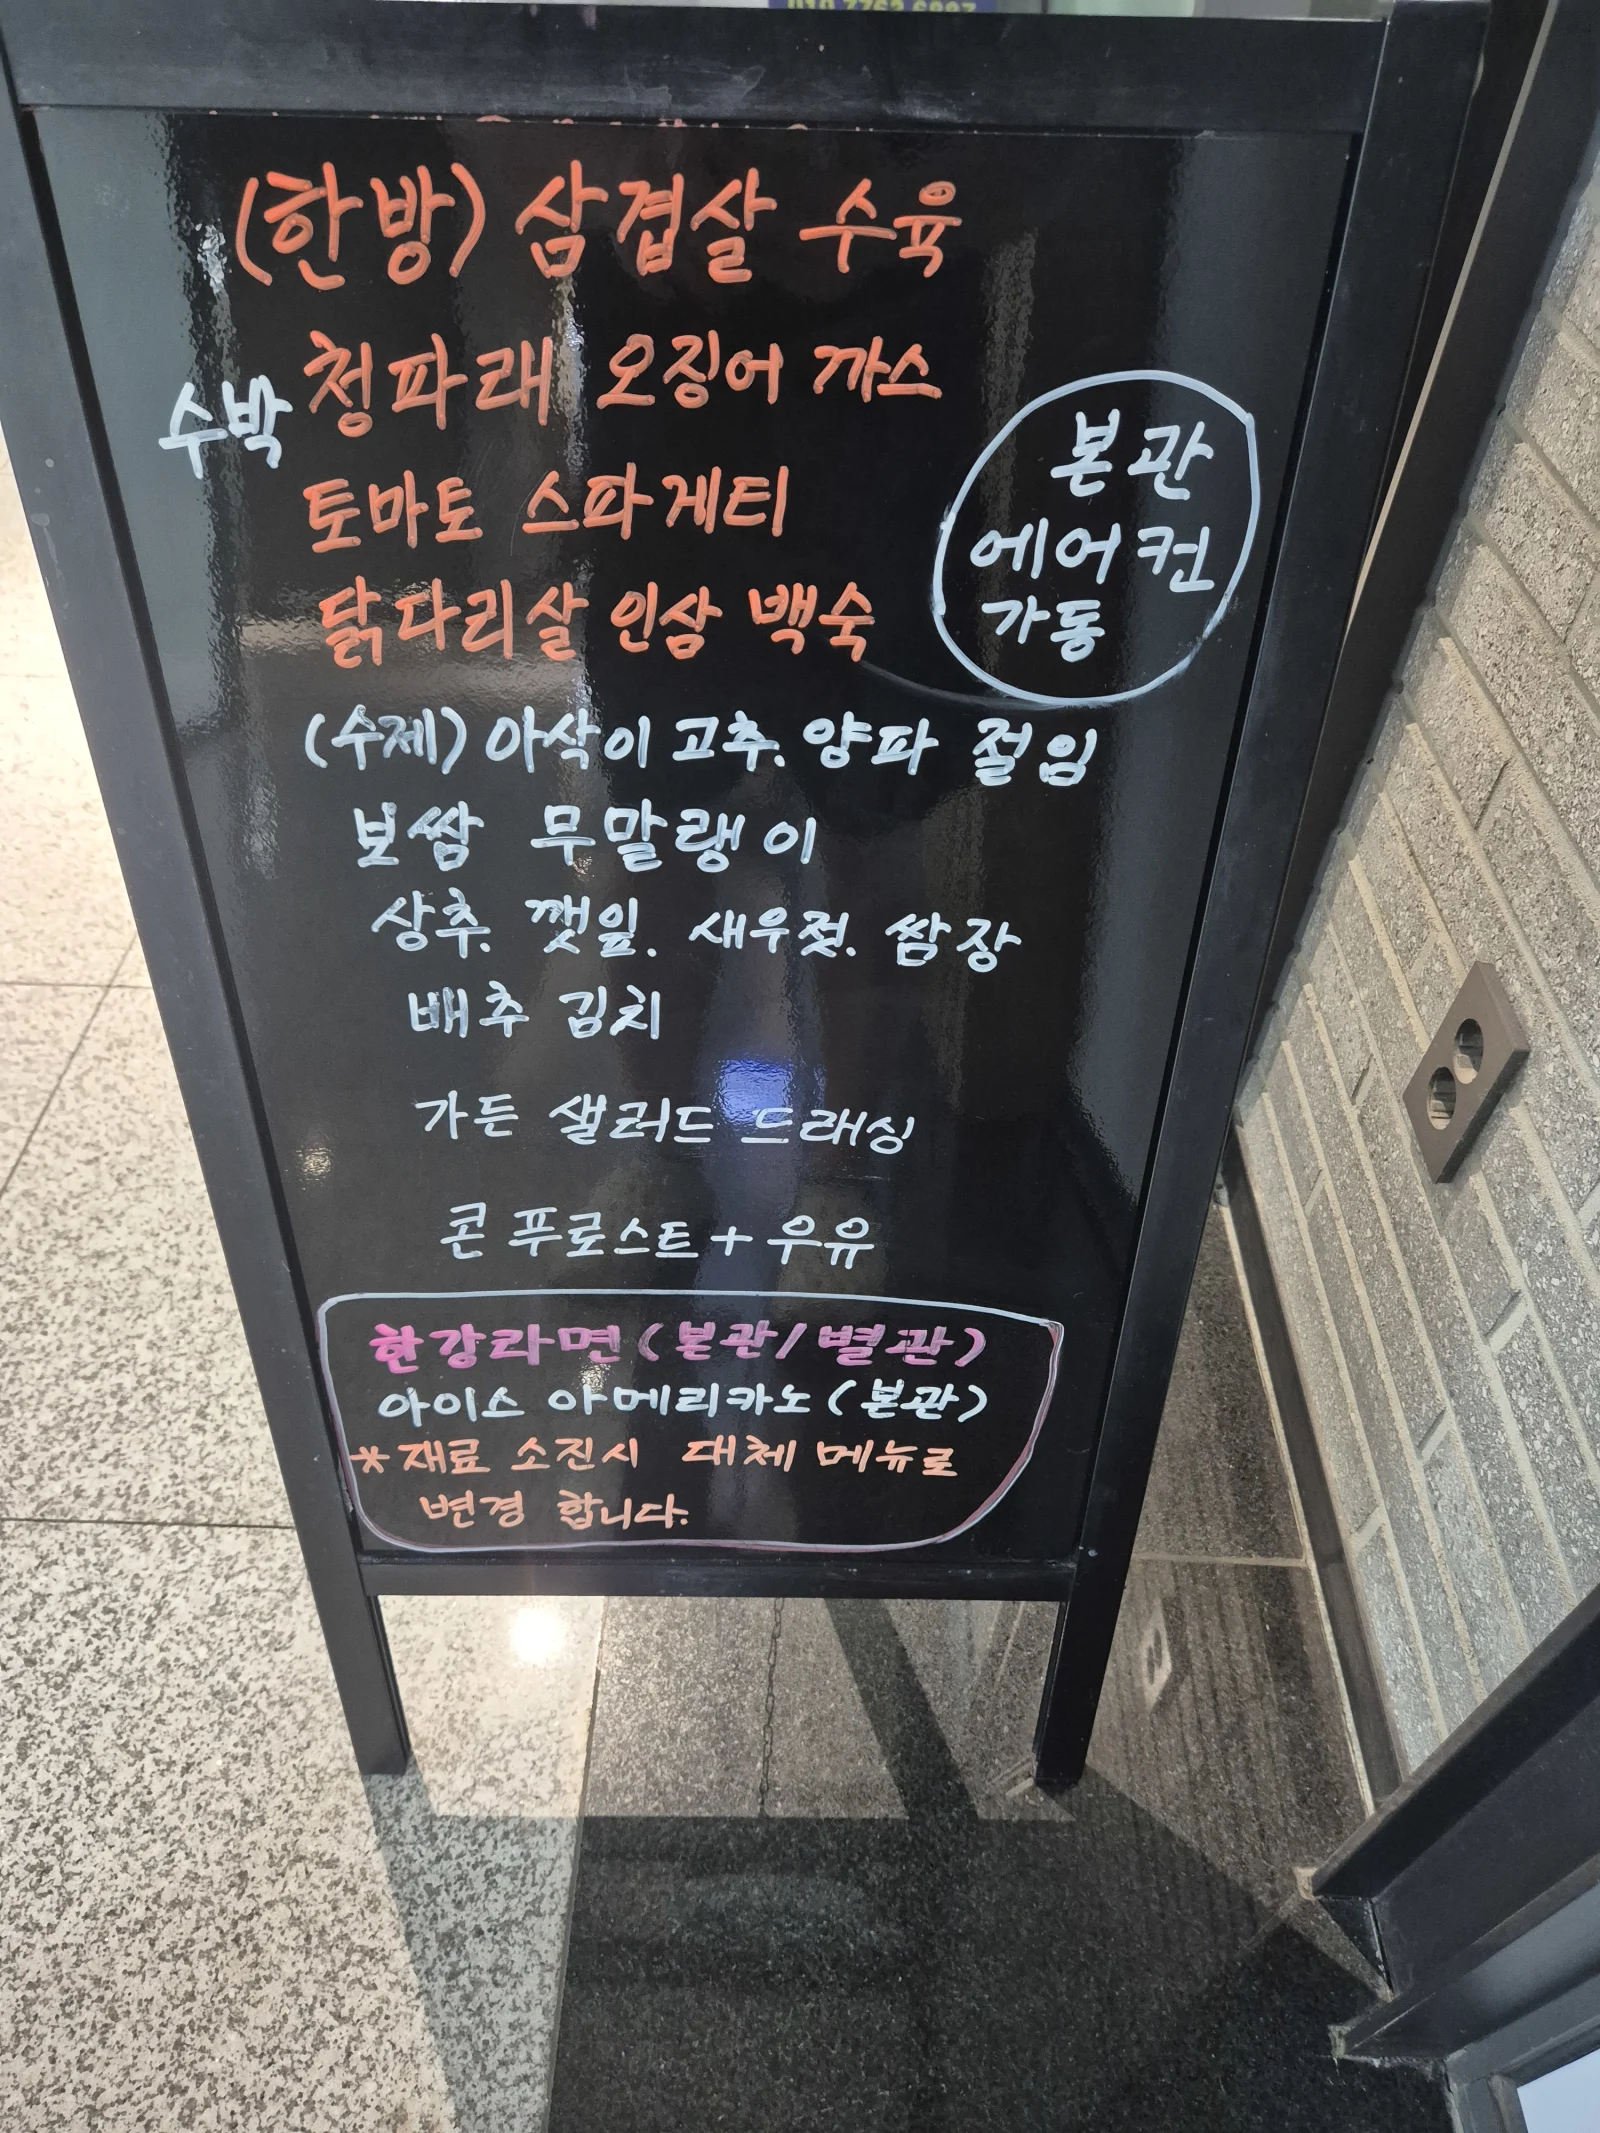 (한방) 삼겹살 수육
청파래 오징어 까스
수박
토마토 스파게티
닭다리살 인삼 백숙
본관
에어컨
가동
(수제) 아삭이 고추. 양파 절임
보쌈 무말랭이
상추. 깻잎. 새우젓. 쌈장
배추 김치
가든 샐러드 드래싱
콘 푸로스트 + 우유
한강라면 (본관/별관)
아이스 아메리카노 (본관)
* 재료 소진시 대체 메뉴로
변경 합니다.